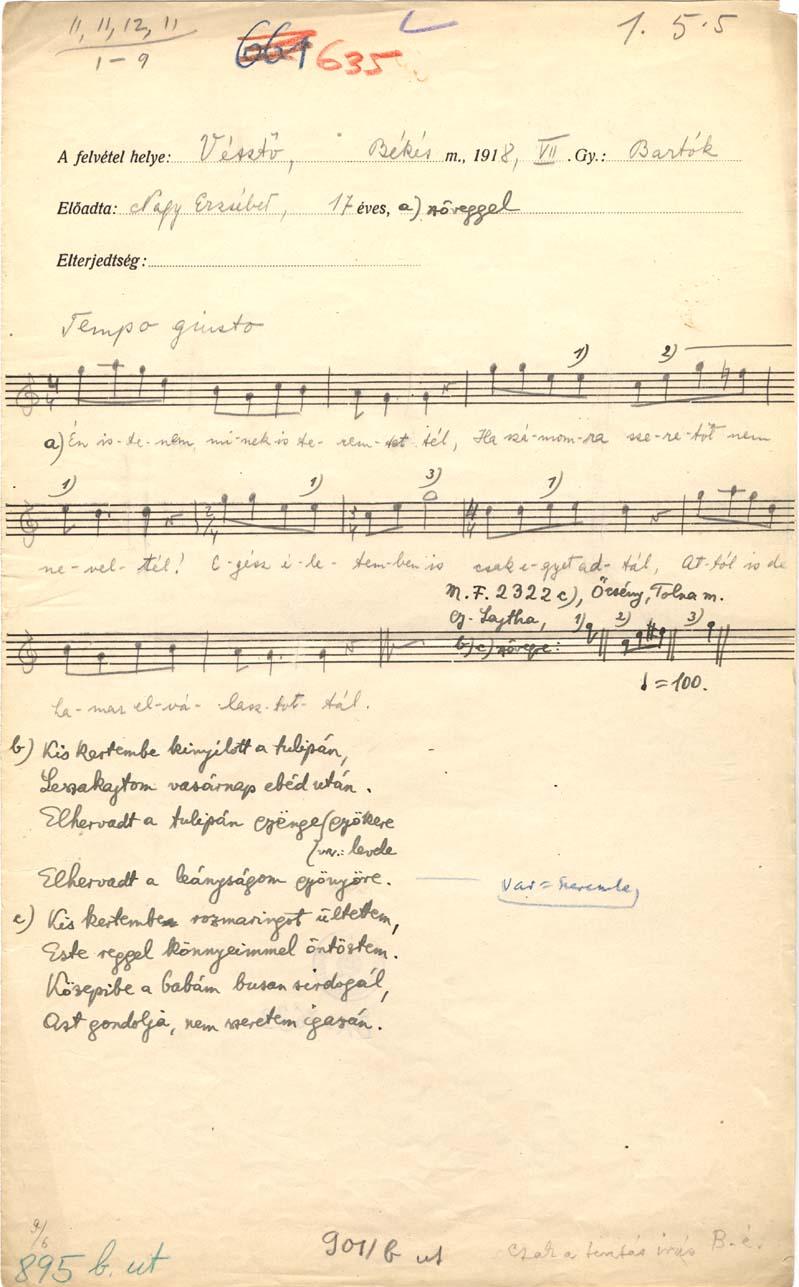 11, 11, 12, 11
1-9
661 635
1. 5.5
A felvétel helye: Vésztő, Békés m., 1918, VII. Gy.: Bartók
Előadta: Nagy Erzsébet, 17 éves, a) szöveggel
Elterjedtség:
Tempo giusto
1) 2)
a) Én is-te-nem mi-nek is te-rem-tet-tél, Ha szá-mom-ra sze-re-tőt nem
1) 1) 3) 1)
ne-vel-tél! E-gész é-le-tem-ben is csak e-gyet ad-tál, At-tól is de
M.F. 2322 c), Őcsény, Tolna m.
gy. Lajtha, 1) 2) 3)
b) c) szövege:
♩ = 100.
ha-mar el-vá-lasz-tot-tál.
b) Kis kertembe kinyílott a tulipán,
Leszakajtom vasárnap ebéd után.
Elhervadt a tulipán gyënge gyökere
var.: levele
Elhervadt a leányságom gyönyöre.
c) Kis kertembe rozmaringot ültettem,
Este reggel könnyeimmel öntöztem.
Közepibe a babám busan sirdogál,
Azt gondolja, nem szeretem igazán.
9/6
895 b. ut
901/b ut
csak a tintás írás B.é.